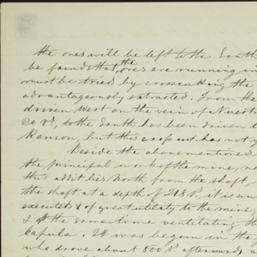 the ones will be left to the South
be found that the ores are running in
must be tried by crosscutting the
advantageously extracted. From the
driven West on the vein of
to the South has been driven
Ramon, but this crosscut has not y
Beside the abovementioned
the principal work of the mine, a
this adit lies North from the shaft,
the shaft at a depth of it is now
executed & of great utility to the mine
& at the sametime ventilating the
Capula. It was begun in the y
who drove about 500 afterwards